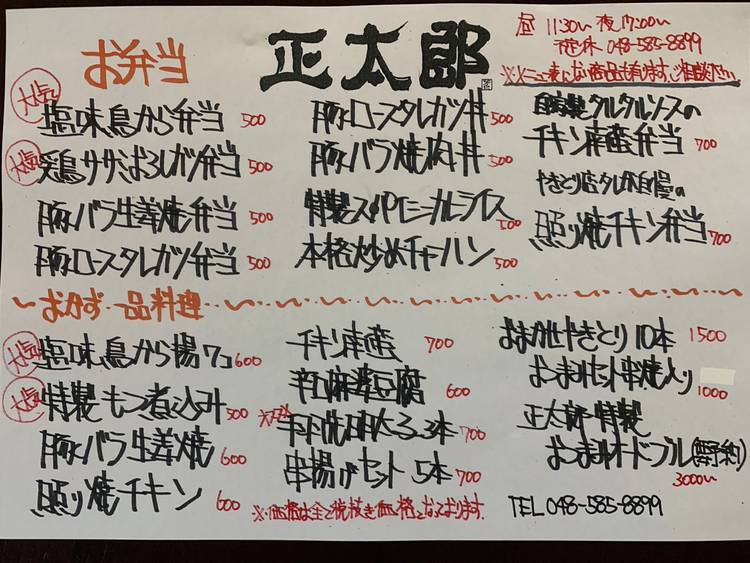 お弁当
正太郎
昼 11:30〜 夜 17:00〜
048-585-8899
※メニュー表にない商品も有ります、ご相談下さい
大人気
塩味鳥から弁当 500
大人気
鶏ササミおろしカツ弁当 500
豚バラ生姜焼弁当 500
豚ロースタレカツ弁当 500
豚ロースタレカツ丼 500
豚バラ焼肉丼 500
特製スパイシーカレーライス 500
本格炒めチャーハン 500
自家製タルタルソースの
チキン南蛮弁当 700
やきとり店タレが自慢の
照り焼チキン弁当 700
おかず 一品料理
大人気
塩味鳥から揚7コ 600
大人気
特製もつ煮込み 500
豚バラ生姜焼 600
照り焼チキン 600
チキン南蛮 700
辛口麻婆豆腐 600
3本 700
串揚げセット 5本 700
※価格は全て税抜き価格となっております。
おまかせやきとり10本 1500
おつまみセット串焼入り 1000
正太郎特製
おつまみオードブル(要予約) 3000〜
TEL 048-585-8899